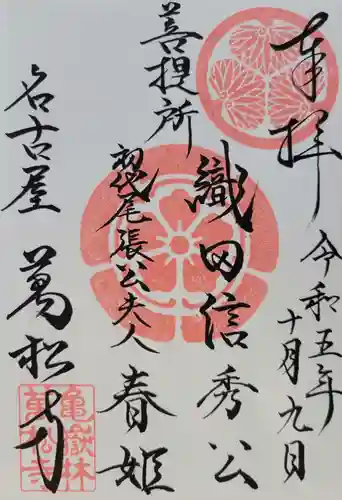 奉拝
令和五年
十月九日
織田信秀公
菩提所
初代尾張公夫人
春姫
名古屋
萬松寺
亀嶽林
萬松寺